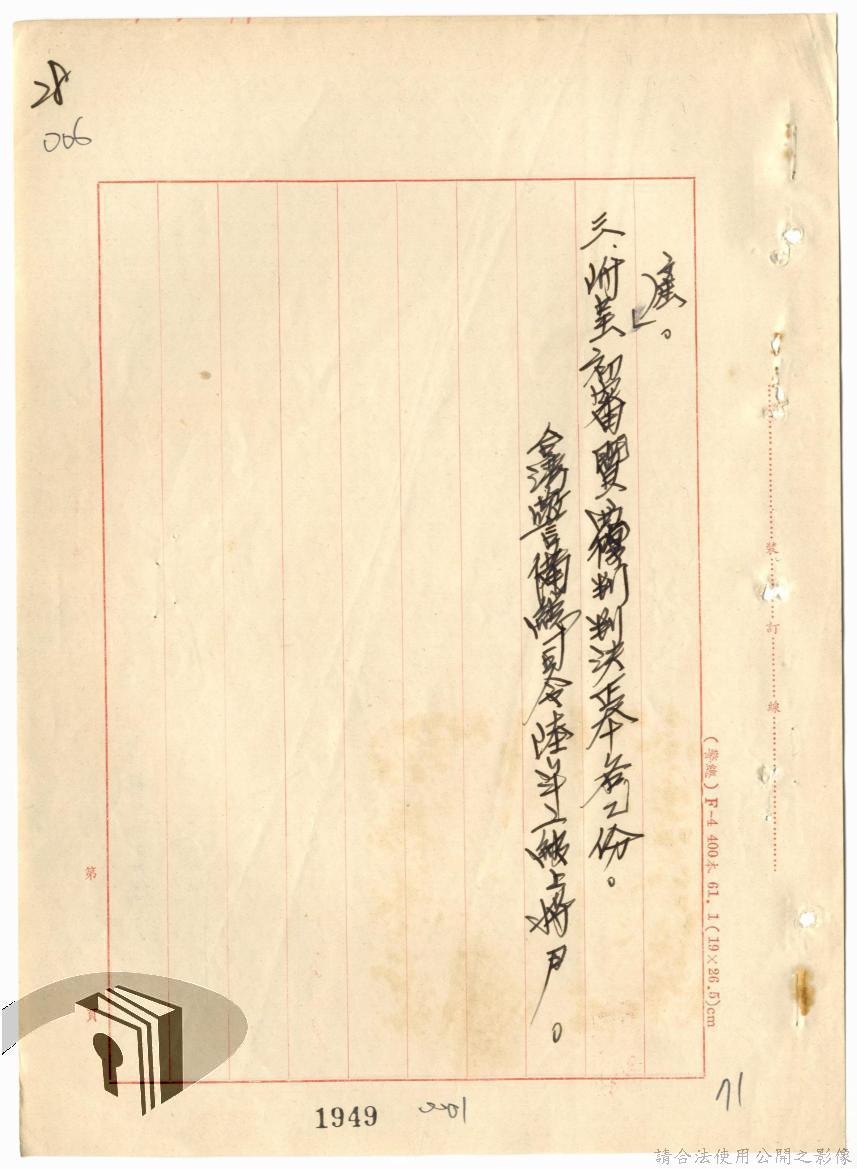 28
006
應。
三、附呈初審暨覆判判決正本各乙份。
台灣警備總司令陸軍二級上將尹 。
裝 訂 線
(警總) F-4 400本 61. 1 (19×26.5)cm
第
頁
1949
71
請合法使用公開之影像